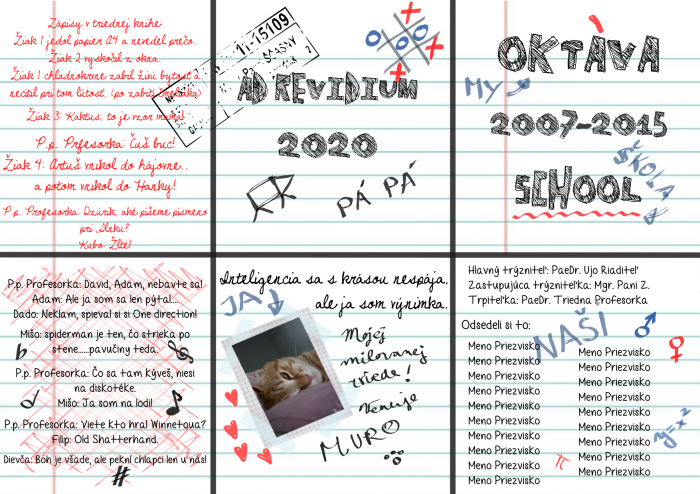 Zápisy v triednej knihe:
Žiak 1 jedol papier A4 a nevedel prečo.
Žiak 2 vyskočil z okna.
Žiak 1 chladnokrvne zabil živú bytosť a
necítil pri tom ľútosť. (po zabití
Žiak 3: Kaktus, to je vzor mama!
P.p. Prfesorka: Čuš buc!
Žiak 4: Artuš vnikol do hájovne..
a potom vnikol do Hanky!
P.p. Profesorka: Dzúrik, aké píšeme písmeno
pri Ǵrku?
Kubo: Žlté!
11-15109
ŠŤASNY
2
AD REVIDIUM
2020
PÁ PÁ
OKTÁVA
MY
2007-2015
ŠKOLA
SCHOOL
P.p. Profesorka: David, Adam, nebavte sa!
Adam: Ale ja som sa len pýtal...
Dado: Neklam, spieval si si One direction!
Mišo: spiderman je ten, čo strieka po
stene.....pavučiny teda.
P.p. Profesorka: Čo sa tam kýveš, niesi
na diskotéke.
Mišo: Ja som na lodi!
P.p. Profesorka: Viete kto hral Winnetoua?
Filip: Old Shatterhand.
Dievča: Boh je všade, ale pekní chlapci len u nás!
#
Inteligencia sa s krásou nespája,
ale ja som výnimka.
JA
Mojej
milovanej
triede!
Venuje
MURO
Hlavný trýzniteľ: PaeDr. Ujo Riaditeľ
Zastupujúca trýzniteľka: Mgr. Pani Z.
Trpiteľka: PaeDr. Triedna Profesorka
Odsedeli si to:
NAŠI
Meno Priezvisko
Meno Priezvisko
Meno Priezvisko
Meno Priezvisko
Meno Priezvisko
Meno Priezvisko
Meno Priezvisko
Meno Priezvisko
Meno Priezvisko
Meno Priezvisko
Meno Priezvisko
Meno Priezvisko
Meno Priezvisko
Meno Priezvisko
Meno Priezvisko
Meno Priezvisko
Meno Priezvisko
Meno Priezvisko
y=x²
π